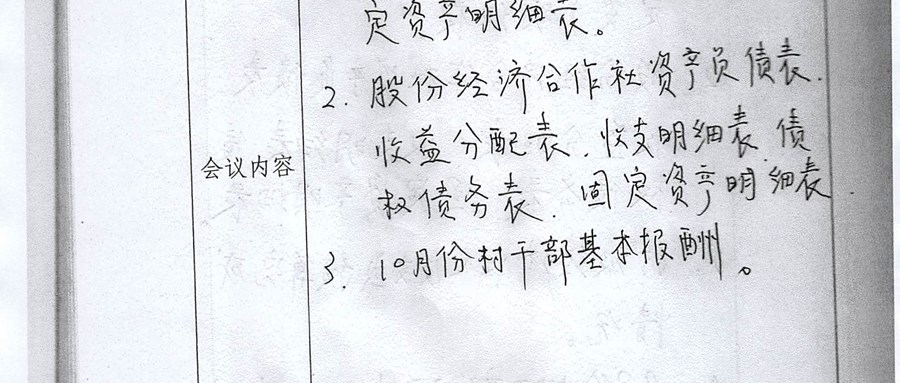 定资产明细表。
2. 股份经济合作社资产负债表、
收益分配表、收支明细表、债
会议内容
权债务表、固定资产明细表
3. 10月份村干部基本报酬。